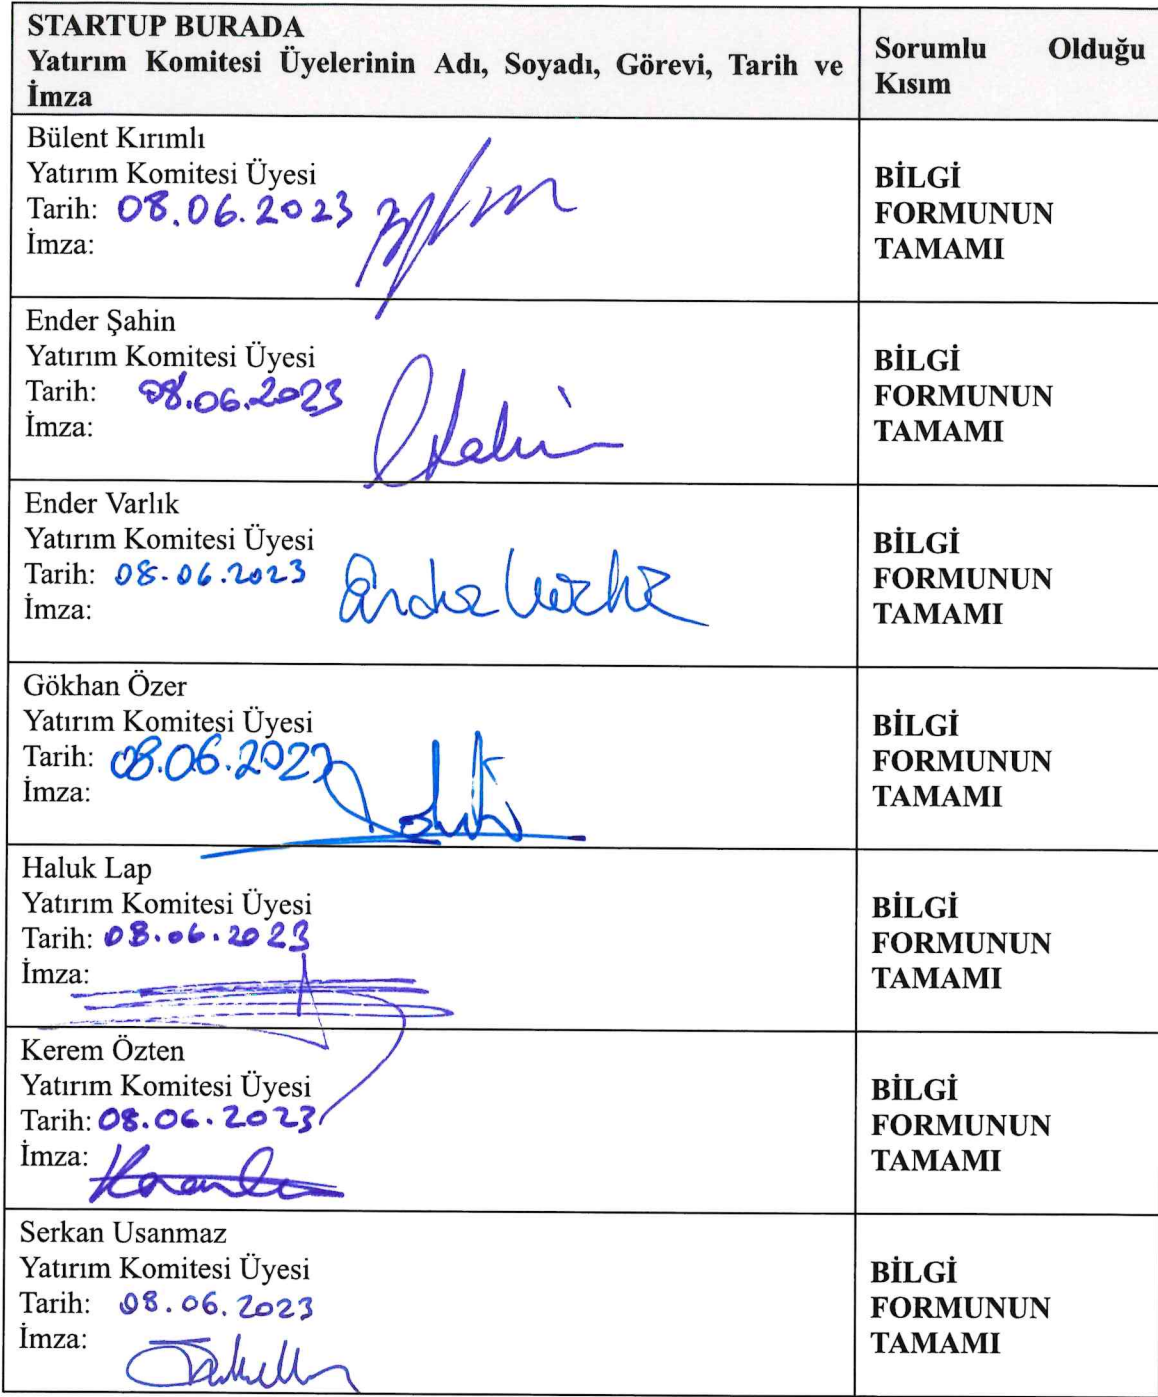 STARTUP BURADA
Yatırım Komitesi Üyelerinin Adı, Soyadı, Görevi, Tarih ve
İmza
Sorumlu Olduğu
Kısım
Bülent Kırımlı
Yatırım Komitesi Üyesi
Tarih: 08.06.2023
İmza:
BİLGİ
FORMUNUN
TAMAMI
Ender Şahin
Yatırım Komitesi Üyesi
Tarih: 08.06.2023
İmza:
BİLGİ
FORMUNUN
TAMAMI
Ender Varlık
Yatırım Komitesi Üyesi
Tarih: 08.06.2023
İmza:
BİLGİ
FORMUNUN
TAMAMI
Gökhan Özer
Yatırım Komitesi Üyesi
Tarih: 08.06.2023
İmza:
BİLGİ
FORMUNUN
TAMAMI
Haluk Lap
Yatırım Komitesi Üyesi
Tarih: 08.06.2023
İmza:
BİLGİ
FORMUNUN
TAMAMI
Kerem Özten
Yatırım Komitesi Üyesi
Tarih: 08.06.2023
İmza:
BİLGİ
FORMUNUN
TAMAMI
Serkan Usanmaz
Yatırım Komitesi Üyesi
Tarih: 08.06.2023
İmza:
BİLGİ
FORMUNUN
TAMAMI